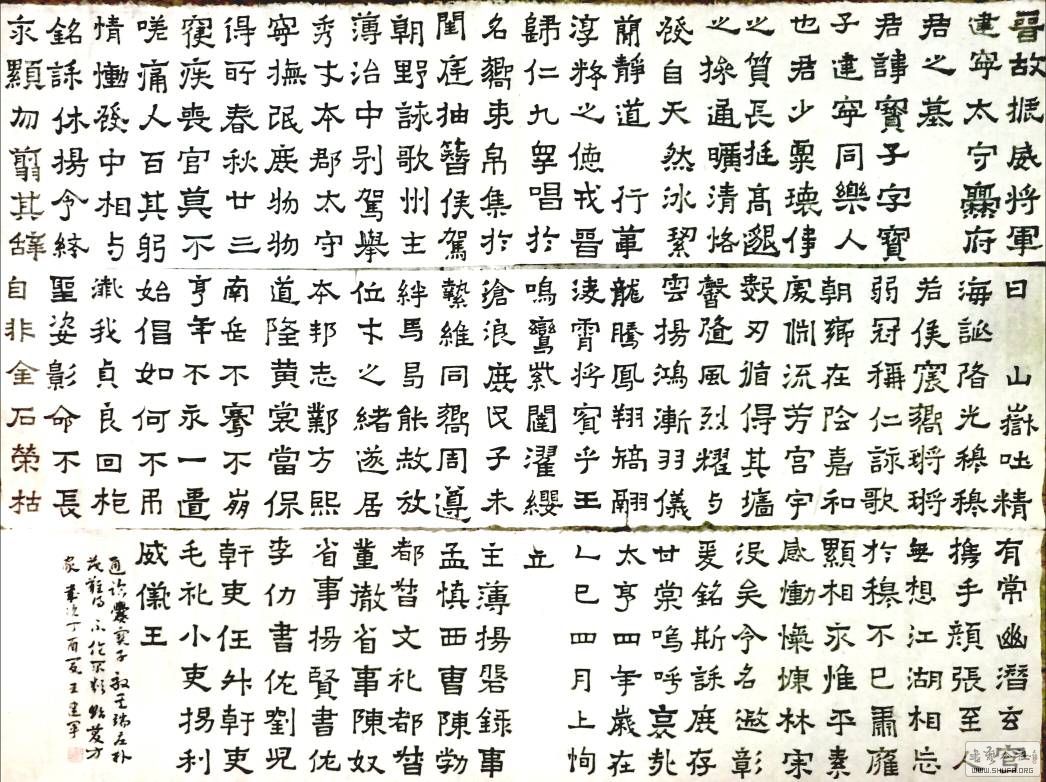 晉故振威將軍
建寧太守爨府
君之墓
君諱寶子字寶
子建寧同樂人
也君少稟瓌偉
之質長挺高邈
之操通曠清恪
發自天然冰絜
簡靜道 行葦
淳粹之德戎晉
歸仁九皋唱於
名嚮束帛集於
閨庭抽簪俟駕
朝野詠歌州主
薄治中別駕舉
秀才本郡太守
寧撫氓庶物物
得所春秋廿三
寢疾喪官莫不
嗟痛人百其躬
情慟發中相与
銘誄休揚令終
永顯勿翦其辭
曰 山嶽吐精
海誕降光穆穆
若侯寔嚮鏘鏘
弱冠稱仁詠歌
朝鄉在陰嘉和
處淵流芳宮宇
數刃循得其牆
馨隨風烈耀与
雲揚鴻漸羽儀
龍騰鳳翔矯翮
淩霄將賓乎王
鳴鸞紫闥濯纓
滄浪庶民子來
縶維同嚮周遵
絆馬曷能赦放
位才之緒遂居
本邦志鄴方熙
道隆黃裳當保
南岳不騫不崩
享年不永一匱
始倡如何不弔
殲我貞良回枹
聖姿影命不長
自非金石榮枯
有常幽潛玄穹
攜手顏張至人
無想江湖相忘
於穆不已肅雍
顯相永惟平素
感慟慷慨林宗
沒矣令名遐彰
爰銘斯誄庶存
甘棠嗚呼哀哉
太亨四年歲在
乙巳四月上恂
立
主薄揚磐錄事
孟慎西曹陳勃
都督文礼都督
董徹省事陳奴
省事揚賢書佐
李仂書佐劉兒
幹吏任升幹吏
毛礼小吏揚利
威儀王
通臨爨寶子
歲次丁酉夏王建軍
WWW.SHUFA.ORG